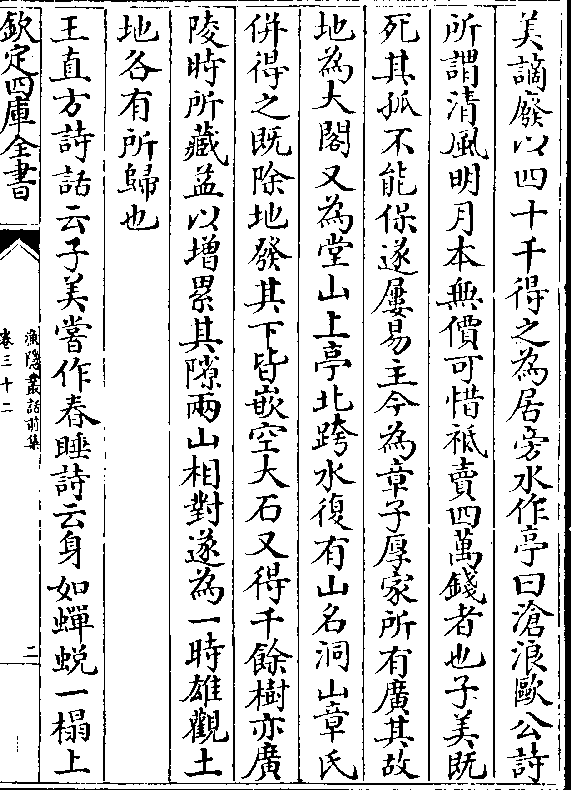 美謫廢以四十千得之為居旁水作亭曰滄浪歐公詩
所謂清風明月本無價可惜祗賣四萬錢者也子美既
死其孤不能保遂屢易主今為章子厚家所有廣其故
地為大閣又為堂山上亭北跨水復有山名洞山章氏
併得之既除地發其下皆嵌空大石又得千餘樹亦廣
陵時所藏益以增累其隙兩山相對遂為一時雄觀土
地各有所歸也
王直方詩話云子美嘗作春睡詩云身如蟬蛻一榻上
欽定四庫全書
漁隱叢話前集
卷三十二
二